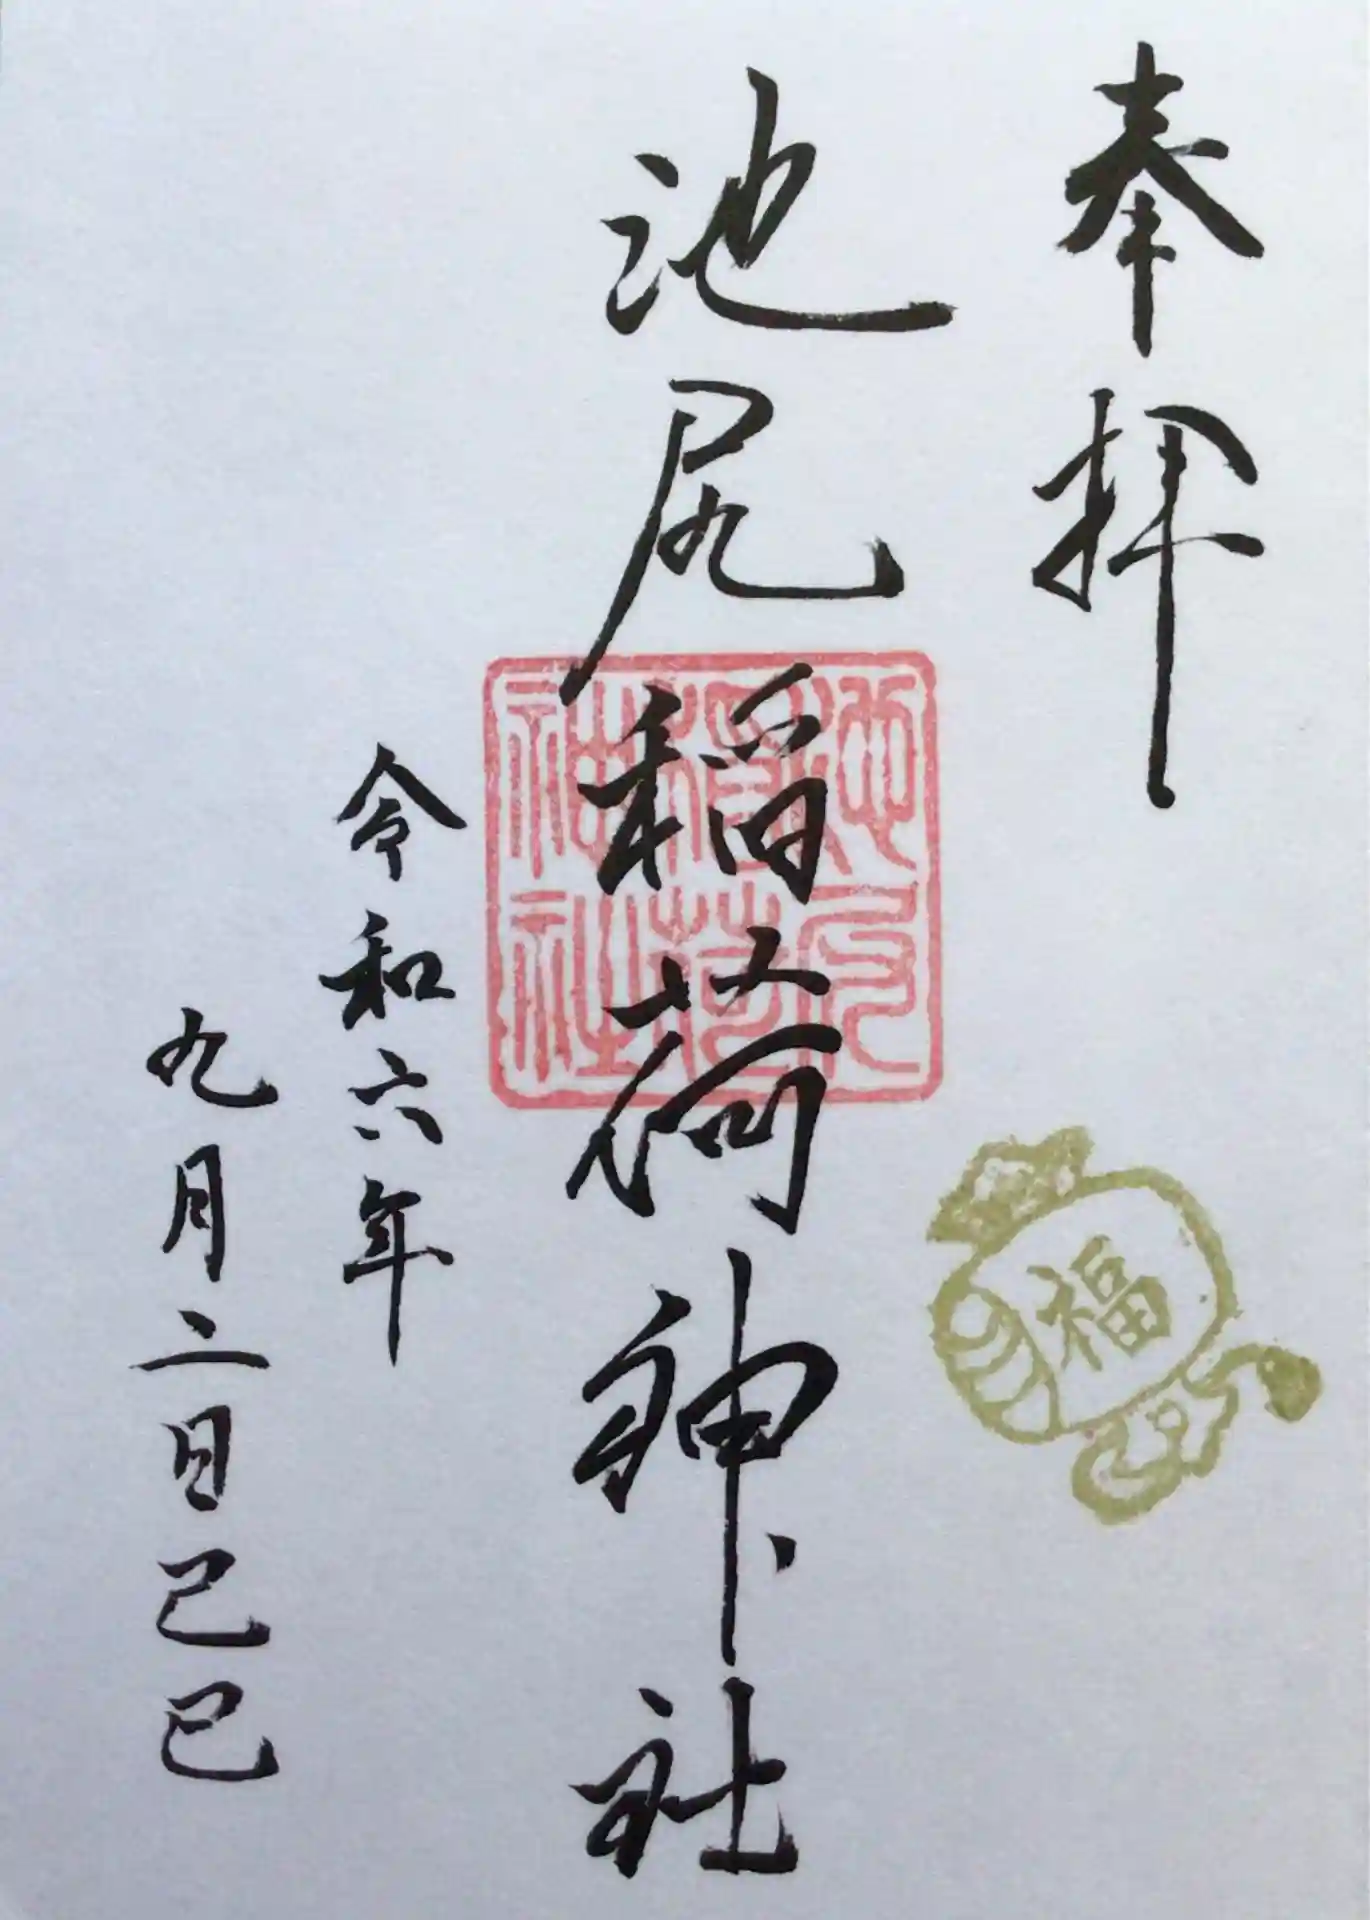 奉拝
福
池尻稲荷神社
池尻
稲荷
神社
令和六年
九月二日己巳